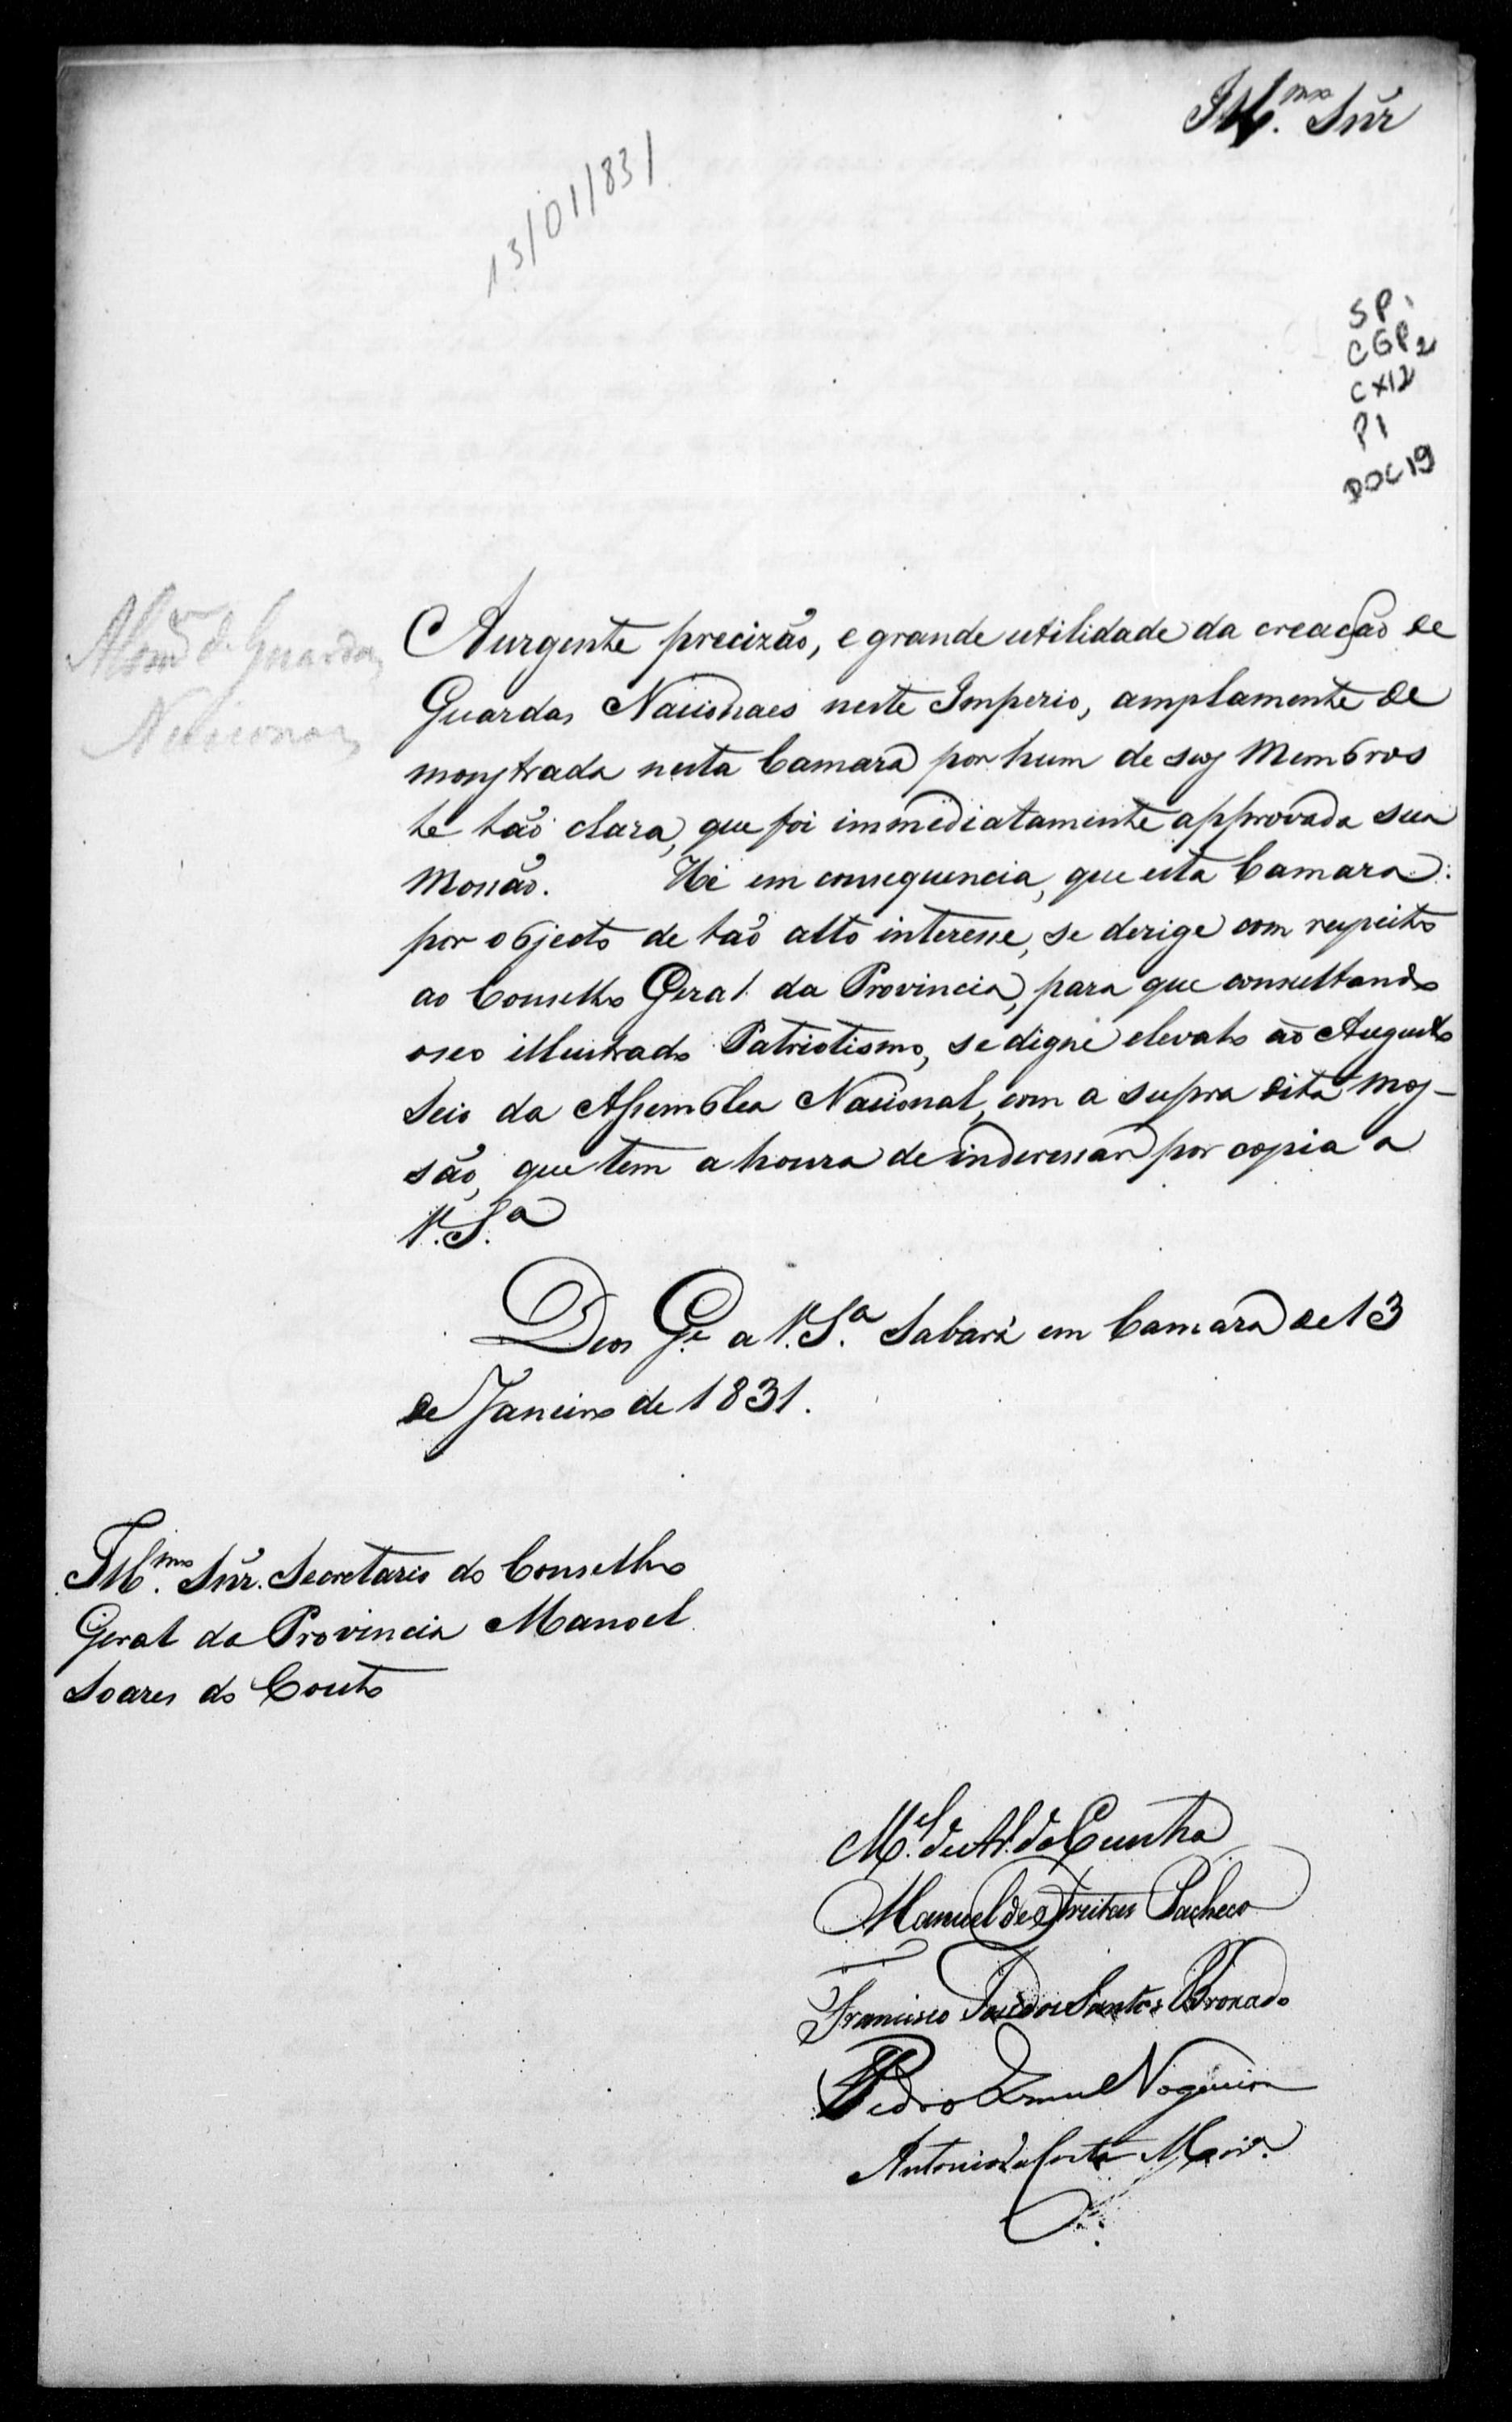 Ill.mo Snr
13/01/831
SP
CGP2
CX12
P1
DOC 19
de Guardas
Nacionaes
A urgente precizão, e grande utilidade da creação de
Guardas Nacionaes neste Imperio, amplamente de
monstrada nesta Camara por hum de seos Membros
he tão clara, que foi immediatamente approvada sua
Mossão. He em consequencia, que esta Camara
por objecto de tão alto interesse, se derige com respeito
ao Conselho Geral da Provincia, para que consultando
o seo illustrado Patriotismo, se digne elevalo ao Augusto
Seio da Assemblea Nacional, com a supra dita Mos-
são, que tem a honra de inderessar por copia a
V.S.a
Deos G.e a V.S.a Sabará em Camara de 13
de Janeiro de 1831.
Ill.mo Snr. Secretario do Conselho
Geral da Provincia Manoel
Soares do Couto
M.el de da Cunha
Manuel de Freitas Pacheco
Francisco José dos Santos Brochado
Pedro Nogueira
Antonio da Costa